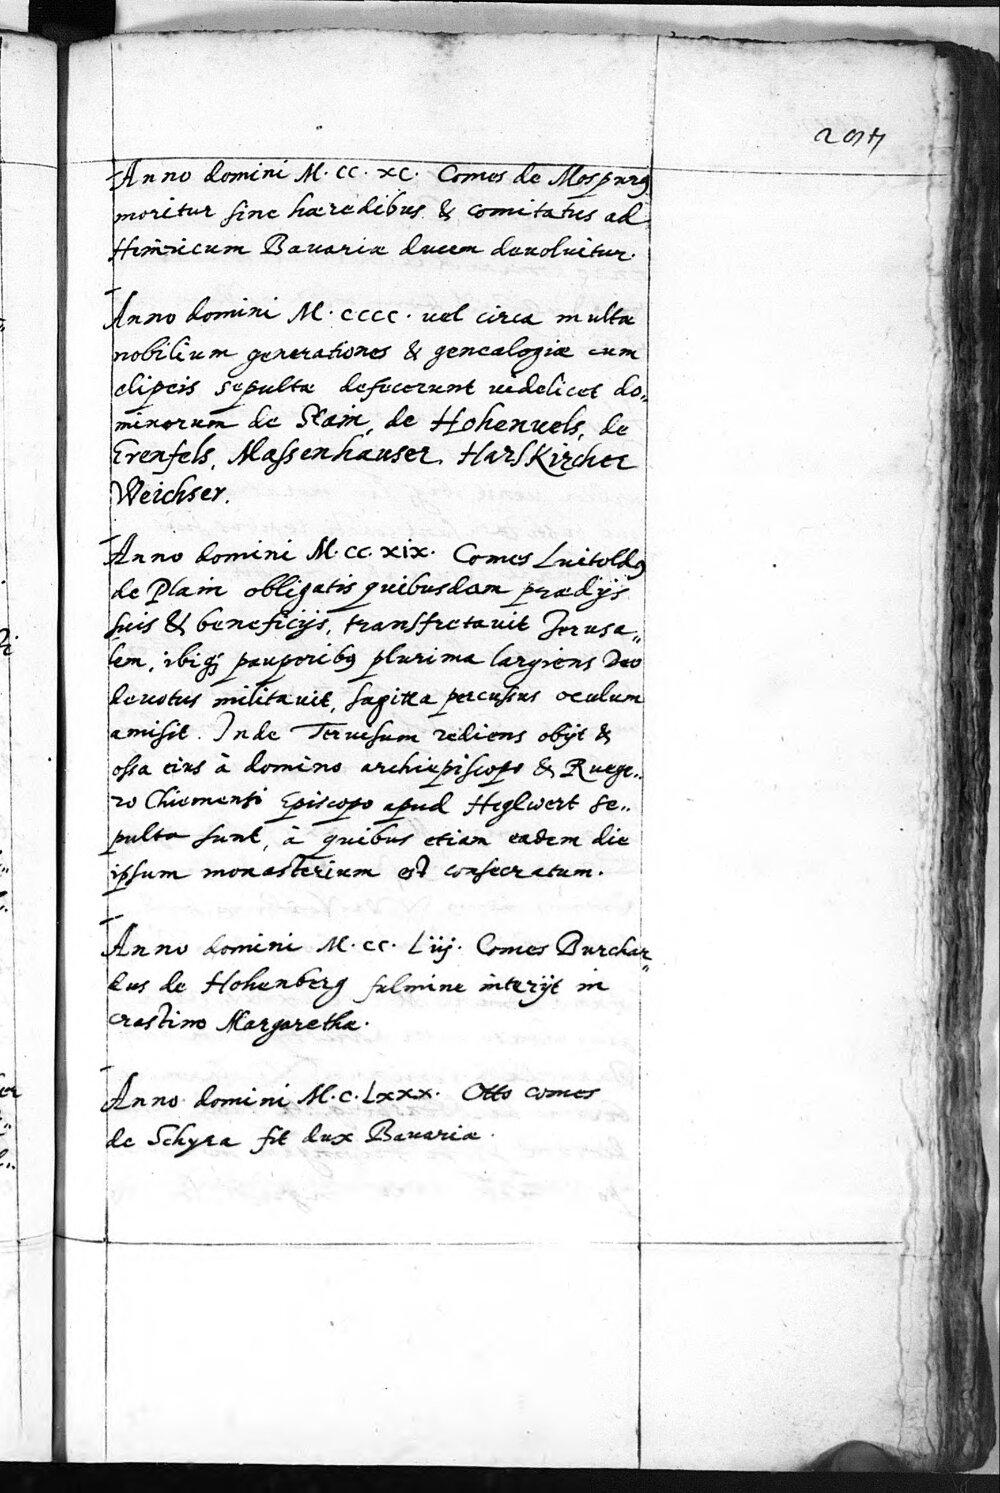 204
Anno domini M. CC. XC. Comes de Mospurg
moritur sine hæredibus & comitatus ad
Heinricum Bavariæ ducem devoluitur.
Anno domini M. CCCC. uel circa multæ
nobilium generationes & genealogiæ cum
clipeis sepultæ defecerunt uidelicet do„
minorum de Stain, de Hohenuels, de
Erenfels, Massenhauser, Harskircher
Weichser.
Anno domini M. CC. XIX. Comes Luitoldꝰ
de Plain obligatis quibusdam prædijs
suis & beneficijs, transfretauit Jerusa„
lem, ibiq; pauperibꝰ plurima largiens Deo
deuotus militauit, sagitta percussus oculum
amisit. Inde Teruisum rediens obijt &
ossa eius à domino archiepiscopo & Ruege„
ro Chiemensi Episcopo apud Heglwert se„
pulta sunt, à quibus etiam eadem die
ipsum monasterium est consecratum.
Anno domini M. CC. Liij. Comes Burchar„
dus de Hohenberg fulmine interijt in
crastino Margarethæ.
Anno domini M. C. Lxxx. Otto comes
de Schyra fit dux Bauariæ.